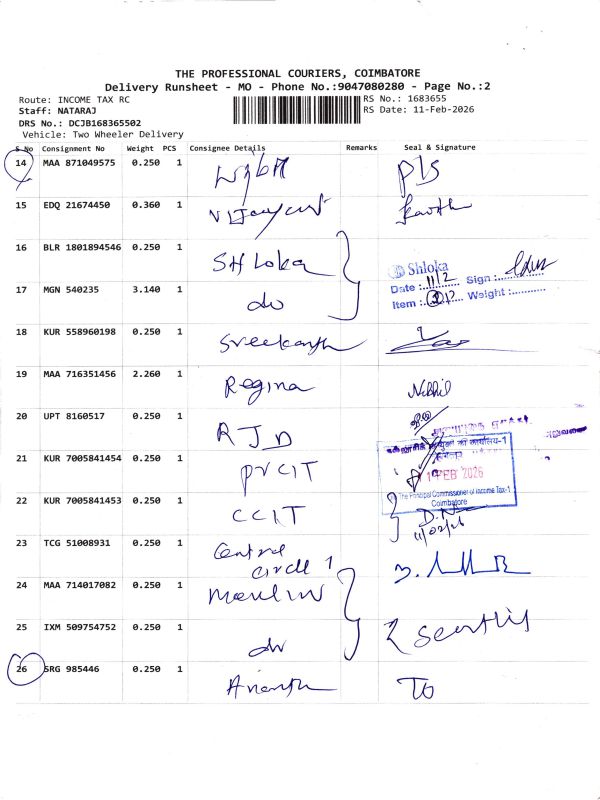 THE PROFESSIONAL COURIERS, COIMBATORE
Delivery Runsheet - MO - Phone No.:9047080280 - Page No.:2
Route: INCOME TAX RC
RS No.: 1683655
Staff: NATARAJ
RS Date: 11-Feb-2026
DRS No.: DCJB168365502
Vehicle: Two Wheeler Delivery
S No Consignment No Weight PCS Consignee Details Remarks Seal & Signature
14 MAA 871049575 0.250 1
15 EDQ 21674450 0.360 1
16 BLR 1801894546 0.250 1 SHLoka
Shloka
Date :....11/2 Sign :
17 MGN 540235 3.140 1 do
Item : 2 Weight :...........
18 KUR 558960198 0.250 1 Sreekanth
19 MAA 716351456 2.260 1 Regina Nikhil
20 UPT 8160517 0.250 1 RJD
21 KUR 7005841454 0.250 1 PrCIT
FEB 2026
The Principal Commissioner of Income Tax-1
Coimbatore
22 KUR 7005841453 0.250 1 CCIT
11/02/26
23 TCG 51008931 0.250 1 Central
circle 1
24 MAA 714017082 0.250 1
25 IXM 509754752 0.250 1 do
26 SRG 985446 0.250 1 Ananth